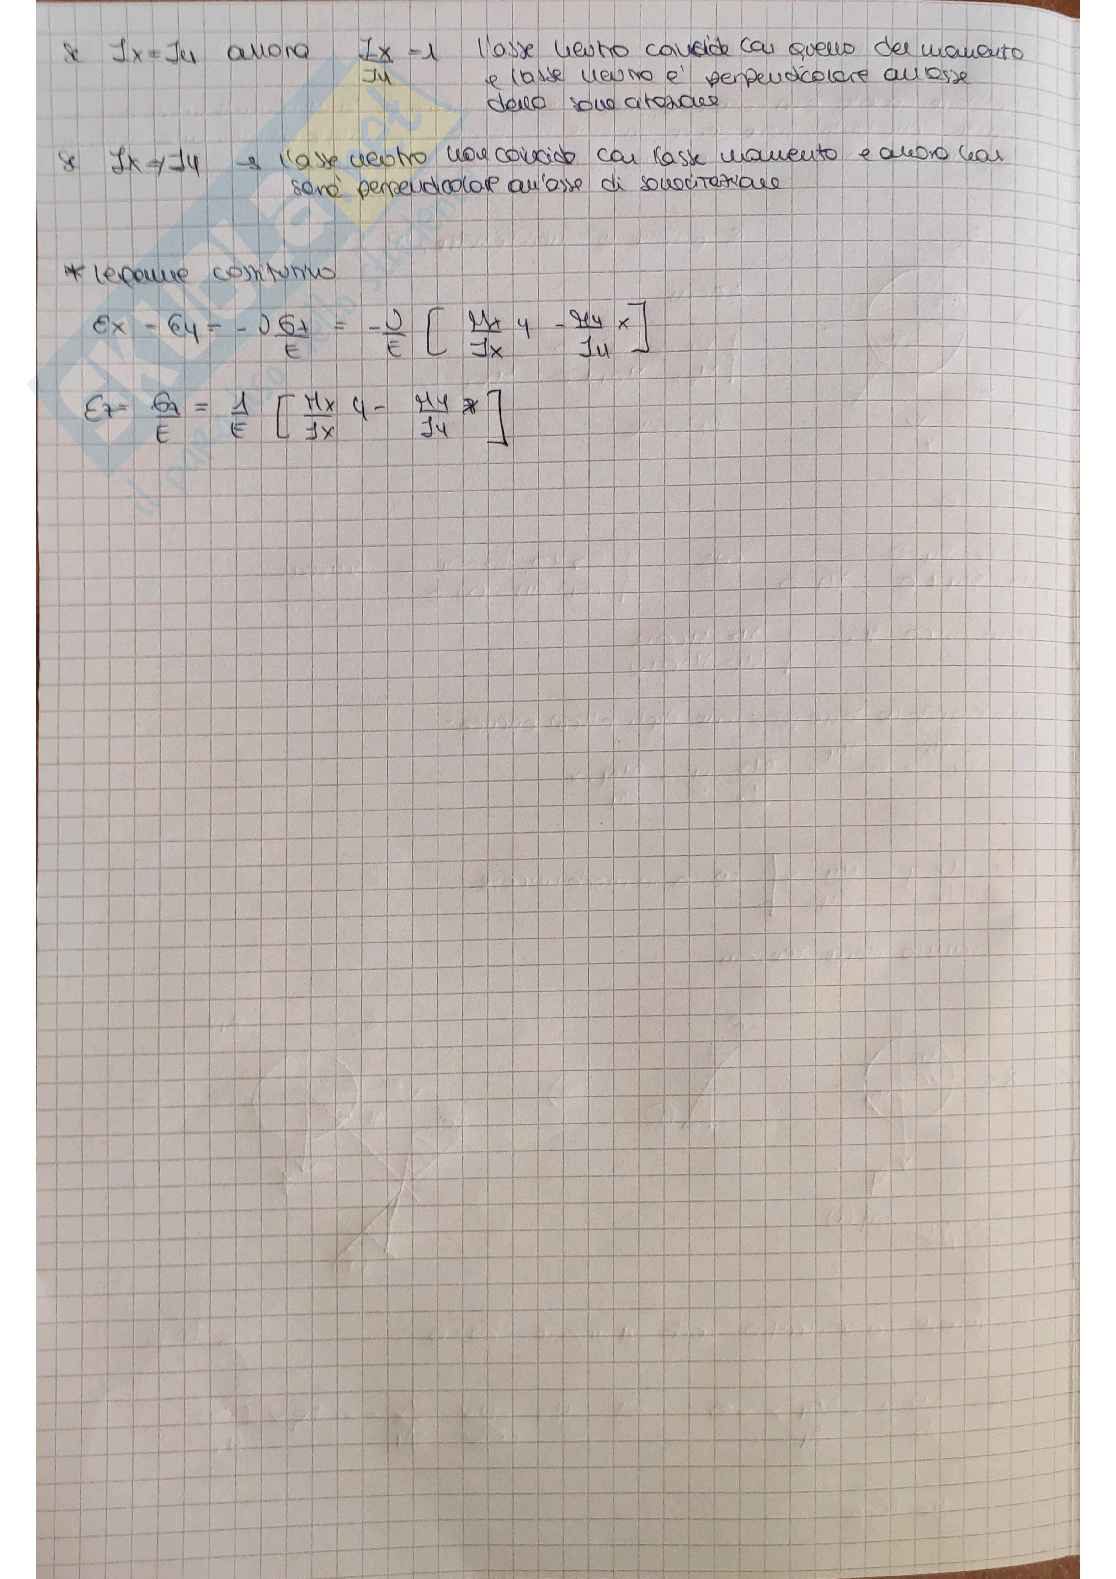 se Jx = Jy allora Jx/Jy = 1 l'asse neutro coincide con quello del momento
e l'asse neutro è perpendicolare all'asse
della sollecitazione
se Jx ≠ Jy → l'asse neutro non coincide con l'asse momento e allora non
sarà perpendicolare all'asse di sollecitazione
* legame costitutivo
εx = εy = - ν σz/E = - ν/E [ Mx/Jx y - My/Jy x ]
εz = σz/E = 1/E [ Mx/Jx y - My/Jy x ]
SKUOLA.net